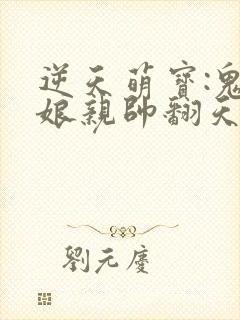 逆天萌寶:鬼
娘親帥翻天
劉元慶